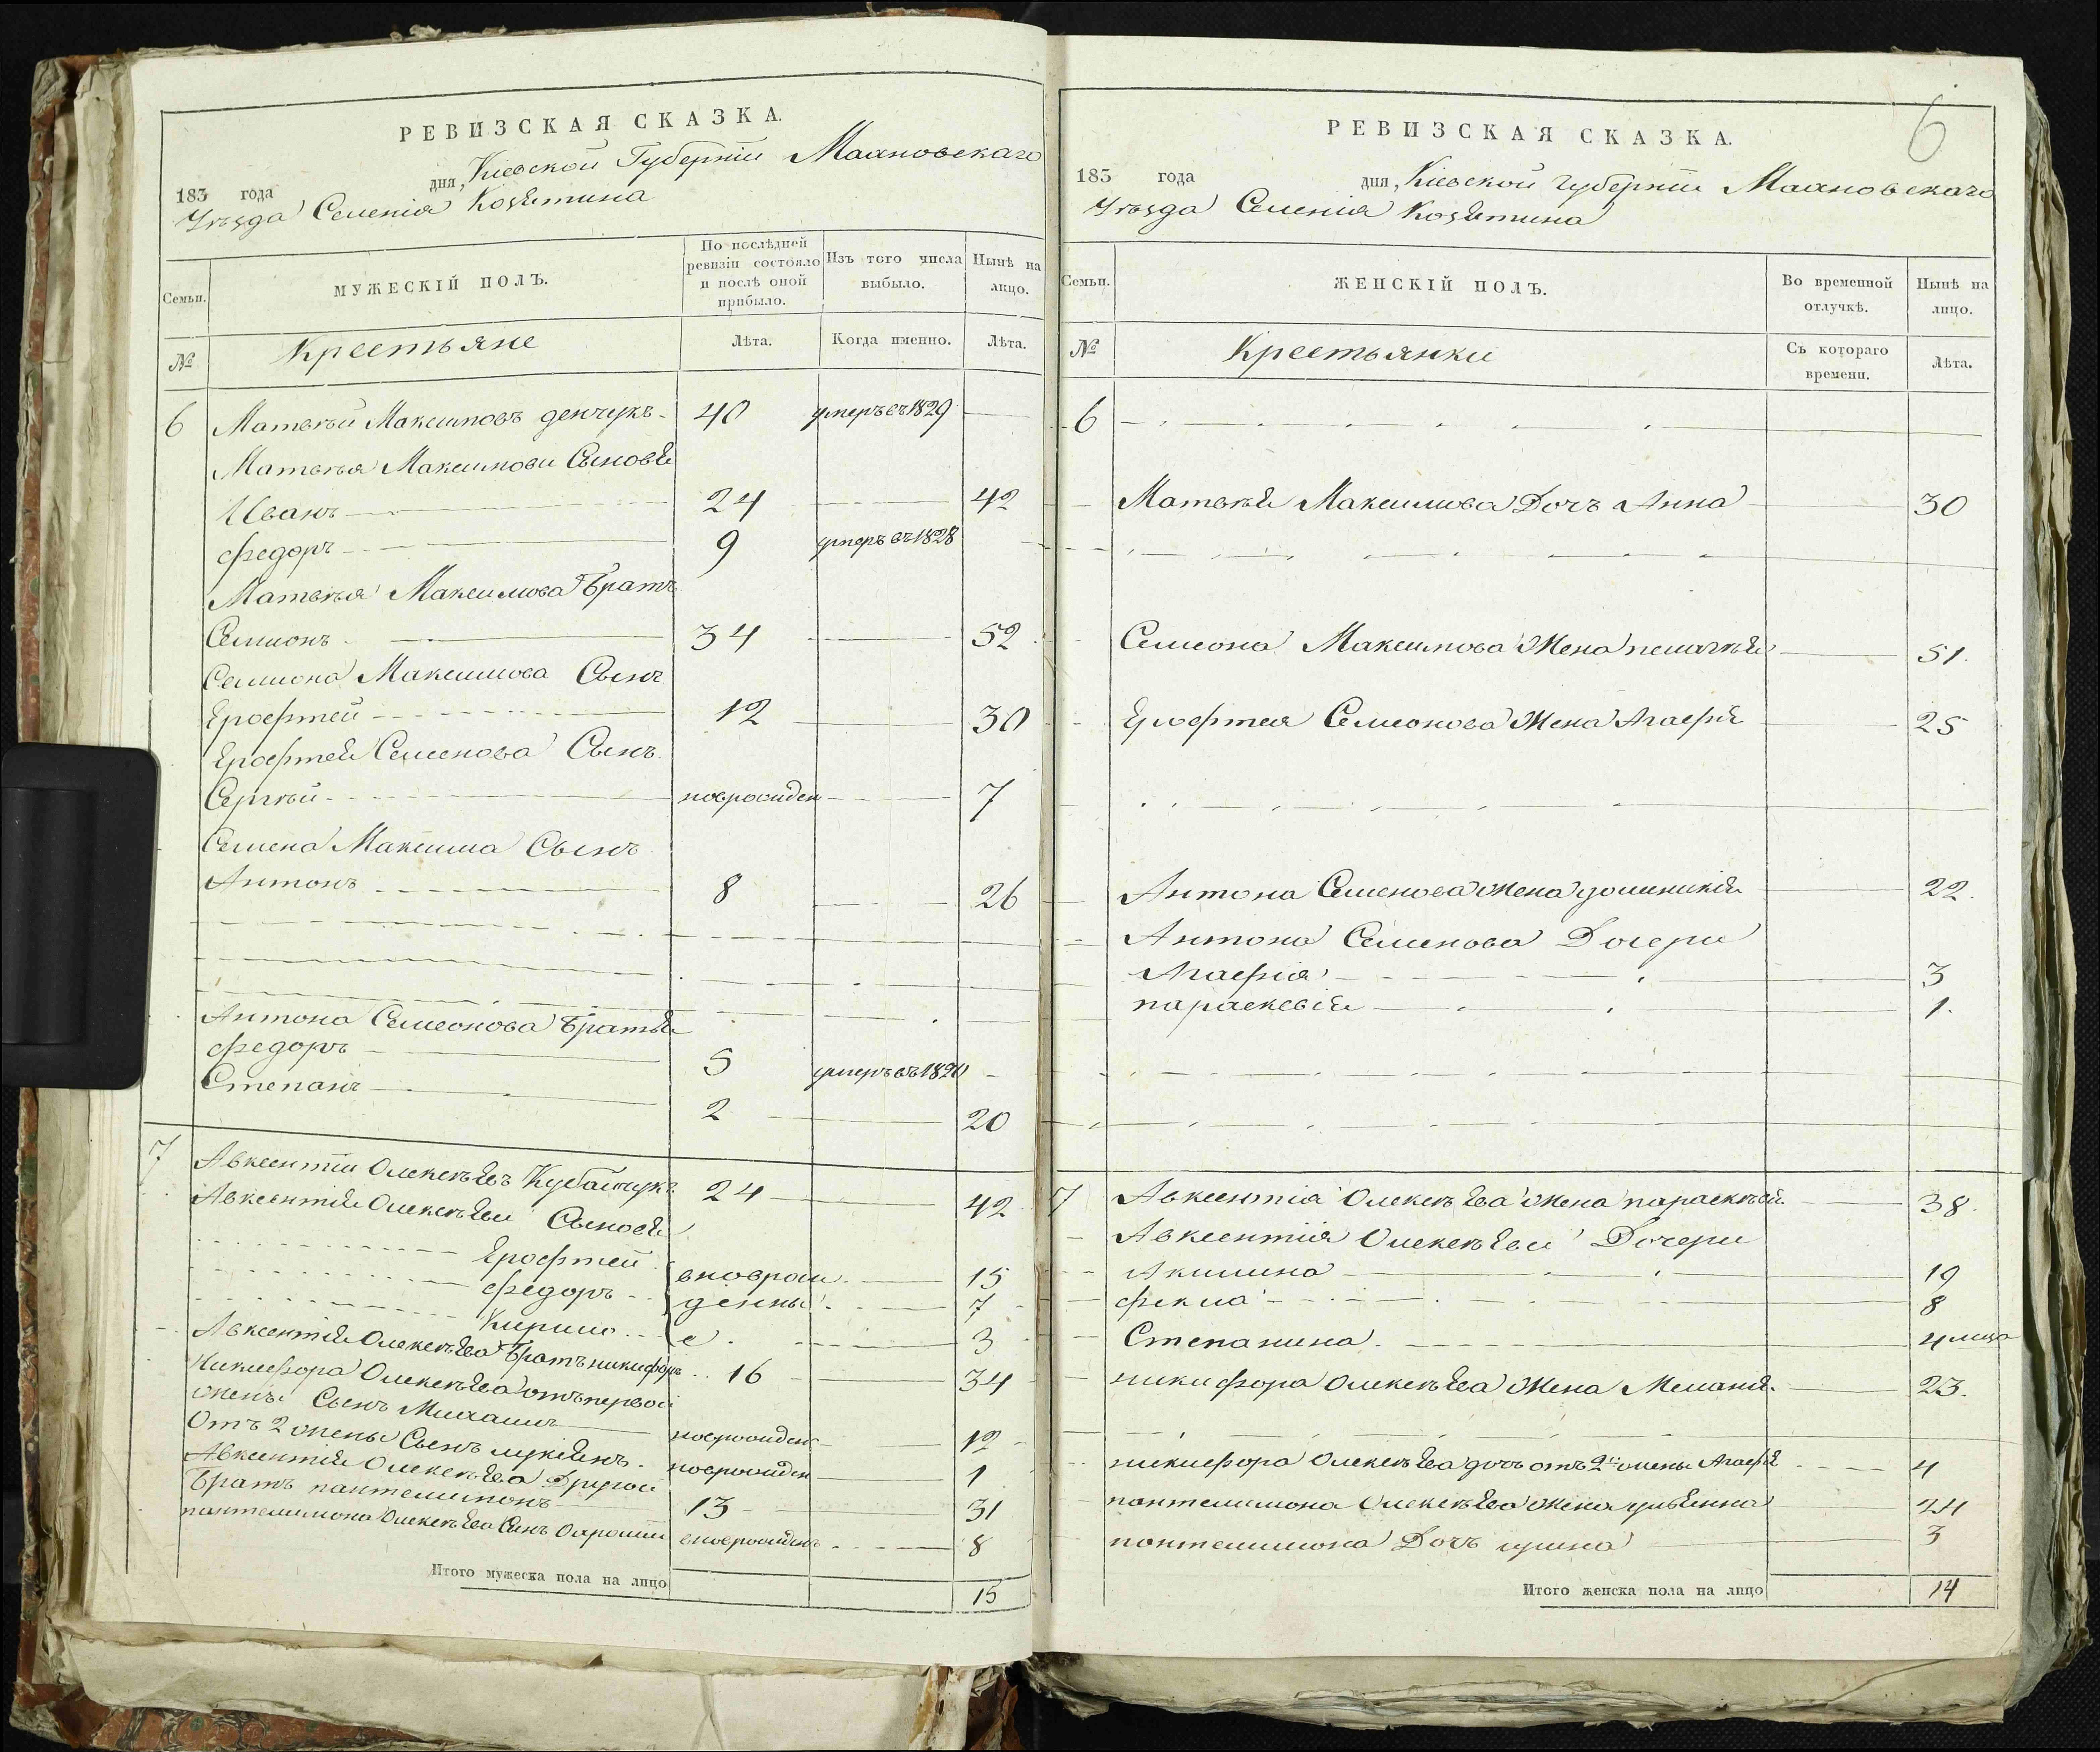 РЕВИЗСКАЯ СКАЗКА.
183 года дня, Кіевской Губерніи Махновскаго
Уѣзда Селенія Козятина
Семьи.
МУЖЕСКІЙ ПОЛЪ.
По послѣдней ревизіи состояло и послѣ оной прибыло.
Изъ того числа выбыло.
Нынѣ на лицо.
№
Крестьяне
Лѣта.
Когда именно.
Лѣта.
6 Матвѣй Максимовъ денчукъ 40 умеръ въ 1829
Матвѣя Максимови Сыновя
Иванъ 24 42
Федоръ 9 умеръ въ 1828
Матвѣя Максимова Братъ
Семионъ 34 52
Семиона Максимова Сынъ
Ерофтей 12 30
Ерофтея Семенова Сынъ
Сергѣй новрожден 7
Семена Максима Сынъ
Антонъ 8 26
Антона Семеонова Братья
Федоръ 5 умеръ въ 1820
Степанъ 2 20
7 Авксентіи Олексѣевъ 24 42
Авксентія Олексѣеви Сыновя
Ерофтей вноврож 15
Федоръ денны 7
Кирило е 3
Авксентія Олексѣева Братъ никифоръ 16 34
Никифора Олексѣева отъ первой
жены Сынъ Михаилъ новрожден 12
Отъ 2 жены Сынъ лукіянъ новрожден 1
Авксентія Олексѣева Другой
Братъ пантелимонъ 13 31
пантелимона Олексѣева Синъ вноврожденъ 8
Итого мужеска пола на лицо 15
6
РЕВИЗСКАЯ СКАЗКА.
183 года дня, Кіевской губерніи Махновскаго
Уѣзда Селенія Козятина
Семьи.
ЖЕНСКІЙ ПОЛЪ.
Во временной отлучкѣ.
Нынѣ на лицо.
№
Крестьянки
Съ котораго времени.
Лѣта.
6
Матвѣя Максимова Дочъ Анна 30
Семеона Максимова Жена 51
Ерофтея Семеонова Жена Агафія 25
Антона Семенова Жена 22
Антона Семенова Дочери
Агафія 3
параскевія 1
7 Авксентія Олексѣева Жена 38
Авксентія Олексѣева Дочери
Акилина 19
Фекла 8
Степанина 4
никифора Олексѣева Жена Меланя 23
никифора Олексѣева дочъ отъ 2й жены Агафя 4
пантелимона Олексѣева Жена улиянна 24
пантелимона Дочъ ирина 3
Итого женска пола на лицо 14